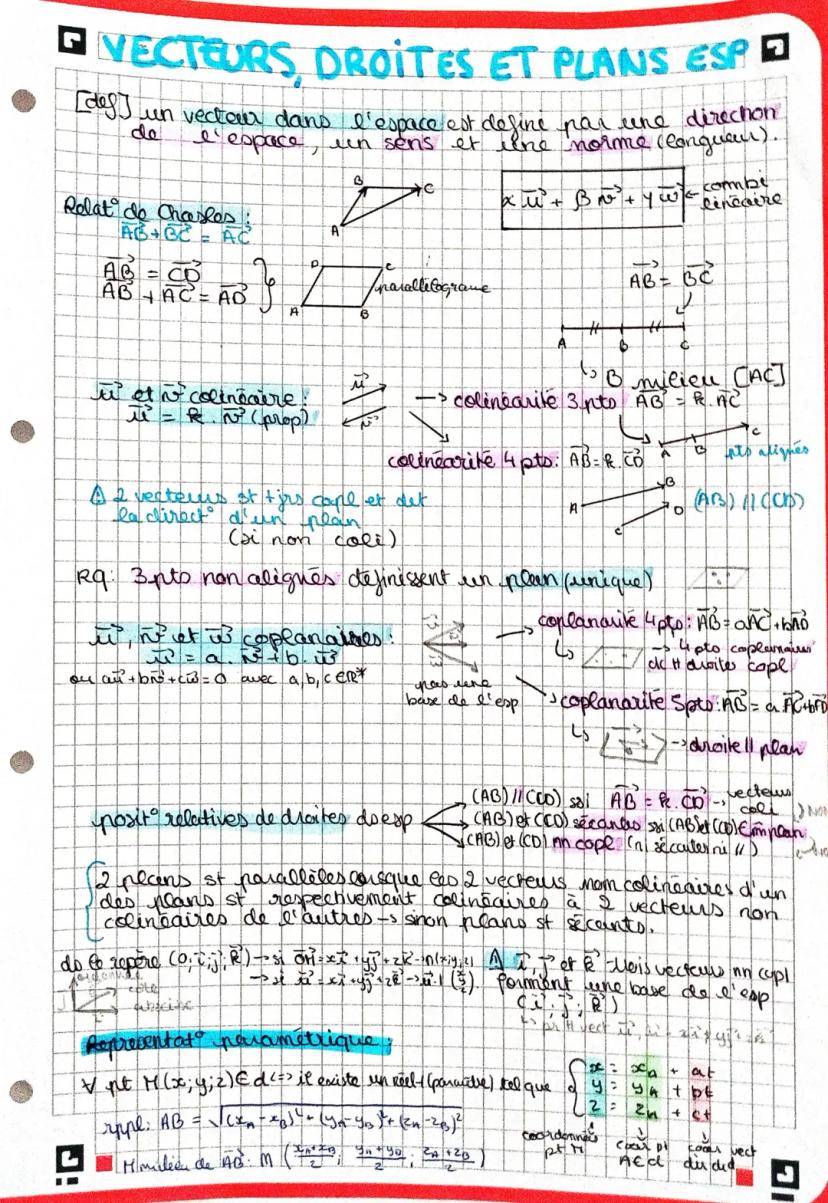 VECTEURS, DROITES ET PLANS ESP
[def] un vecteur dans l'espace est défini par une direction
de l'espace, un sens et une norme (longueur).
Relat° de Chasles :
AB⃗ + BC⃗ = AC⃗
A B C
α u⃗ + β v⃗ + γ w⃗ ← combi linéaire
AB⃗ = CD⃗
AB⃗ + AC⃗ = AD⃗
A B C D parallélograme
AB⃗ = BC⃗
A B C
↳ B milieu [AC]
u⃗ et v⃗ colinéaire :
u⃗ = k . v⃗ (prop)
u⃗
v⃗
→ colinéarité 3 pts AB⃗ = k . AC⃗
A B C pts alignés
colinéarité 4 pts : AB⃗ = k . CD⃗
A B C D (AB) // (CD)
⚠ 2 vecteurs st tjrs copl et det
la direct° d'un plan
(si non coli)
RQ : 3 pts non alignés définissent un plan (unique)
u⃗, v⃗ et w⃗ coplanaires :
u⃗ = a . v⃗ + b . w⃗
ou au⃗ + bv⃗ + cw⃗ = 0 avec a, b, c ∈ R*
pas une
base de l'esp
coplanarité 4 pts : AB⃗ = aAC⃗ + bAD⃗
↳ → 4 pts coplanaires
dc # droites copl
coplanarité 5 pts : AB⃗ = a
↳ → droite // plan
posit° relatives de droites ds esp
(AB) // (CD) ssi AB⃗ = k . CD⃗ → vecteurs coli
(AB) et (CD) sécantes ssi (AB) et (CD) ∈ m plan
(AB) et (CD) nn copl (ni sécantes ni //)
2 plans st parallèles lorsque les 2 vecteurs nom colinéaires d'un
des plans st respectivement colinéaires à 2 vecteurs non
colinéaires de l'autres → sinon plans st sécants.
ds le repère (O; i⃗; j⃗; k⃗) → si OM⃗ = xi⃗ + yj⃗ + zk⃗ → M(x; y; z)
→ si u⃗ = xi⃗ + yj⃗ + zk⃗ → u⃗ (x y z)
cote
abscisse
⚠ i⃗, j⃗ et k⃗ trois vecteurs nn copl
forment une base de l'esp
(i⃗ ; j⃗ ; k⃗)
Representat° paramétrique :
∀ pt M (x; y; z) ∈ d <=> il existe un réel t (paramètre) tel que
x = xA + at
y = yA + bt
z = zA + ct
coordonnées pt M
coor pt A ∈ d
coor vect dir de d
rppl : AB = √(xA - xB)² + (yA - yB)² + (zA - zB)²
M milieu de AB : M ( xA + xB / 2 ; yA + yB / 2 ; zA + zB / 2 )